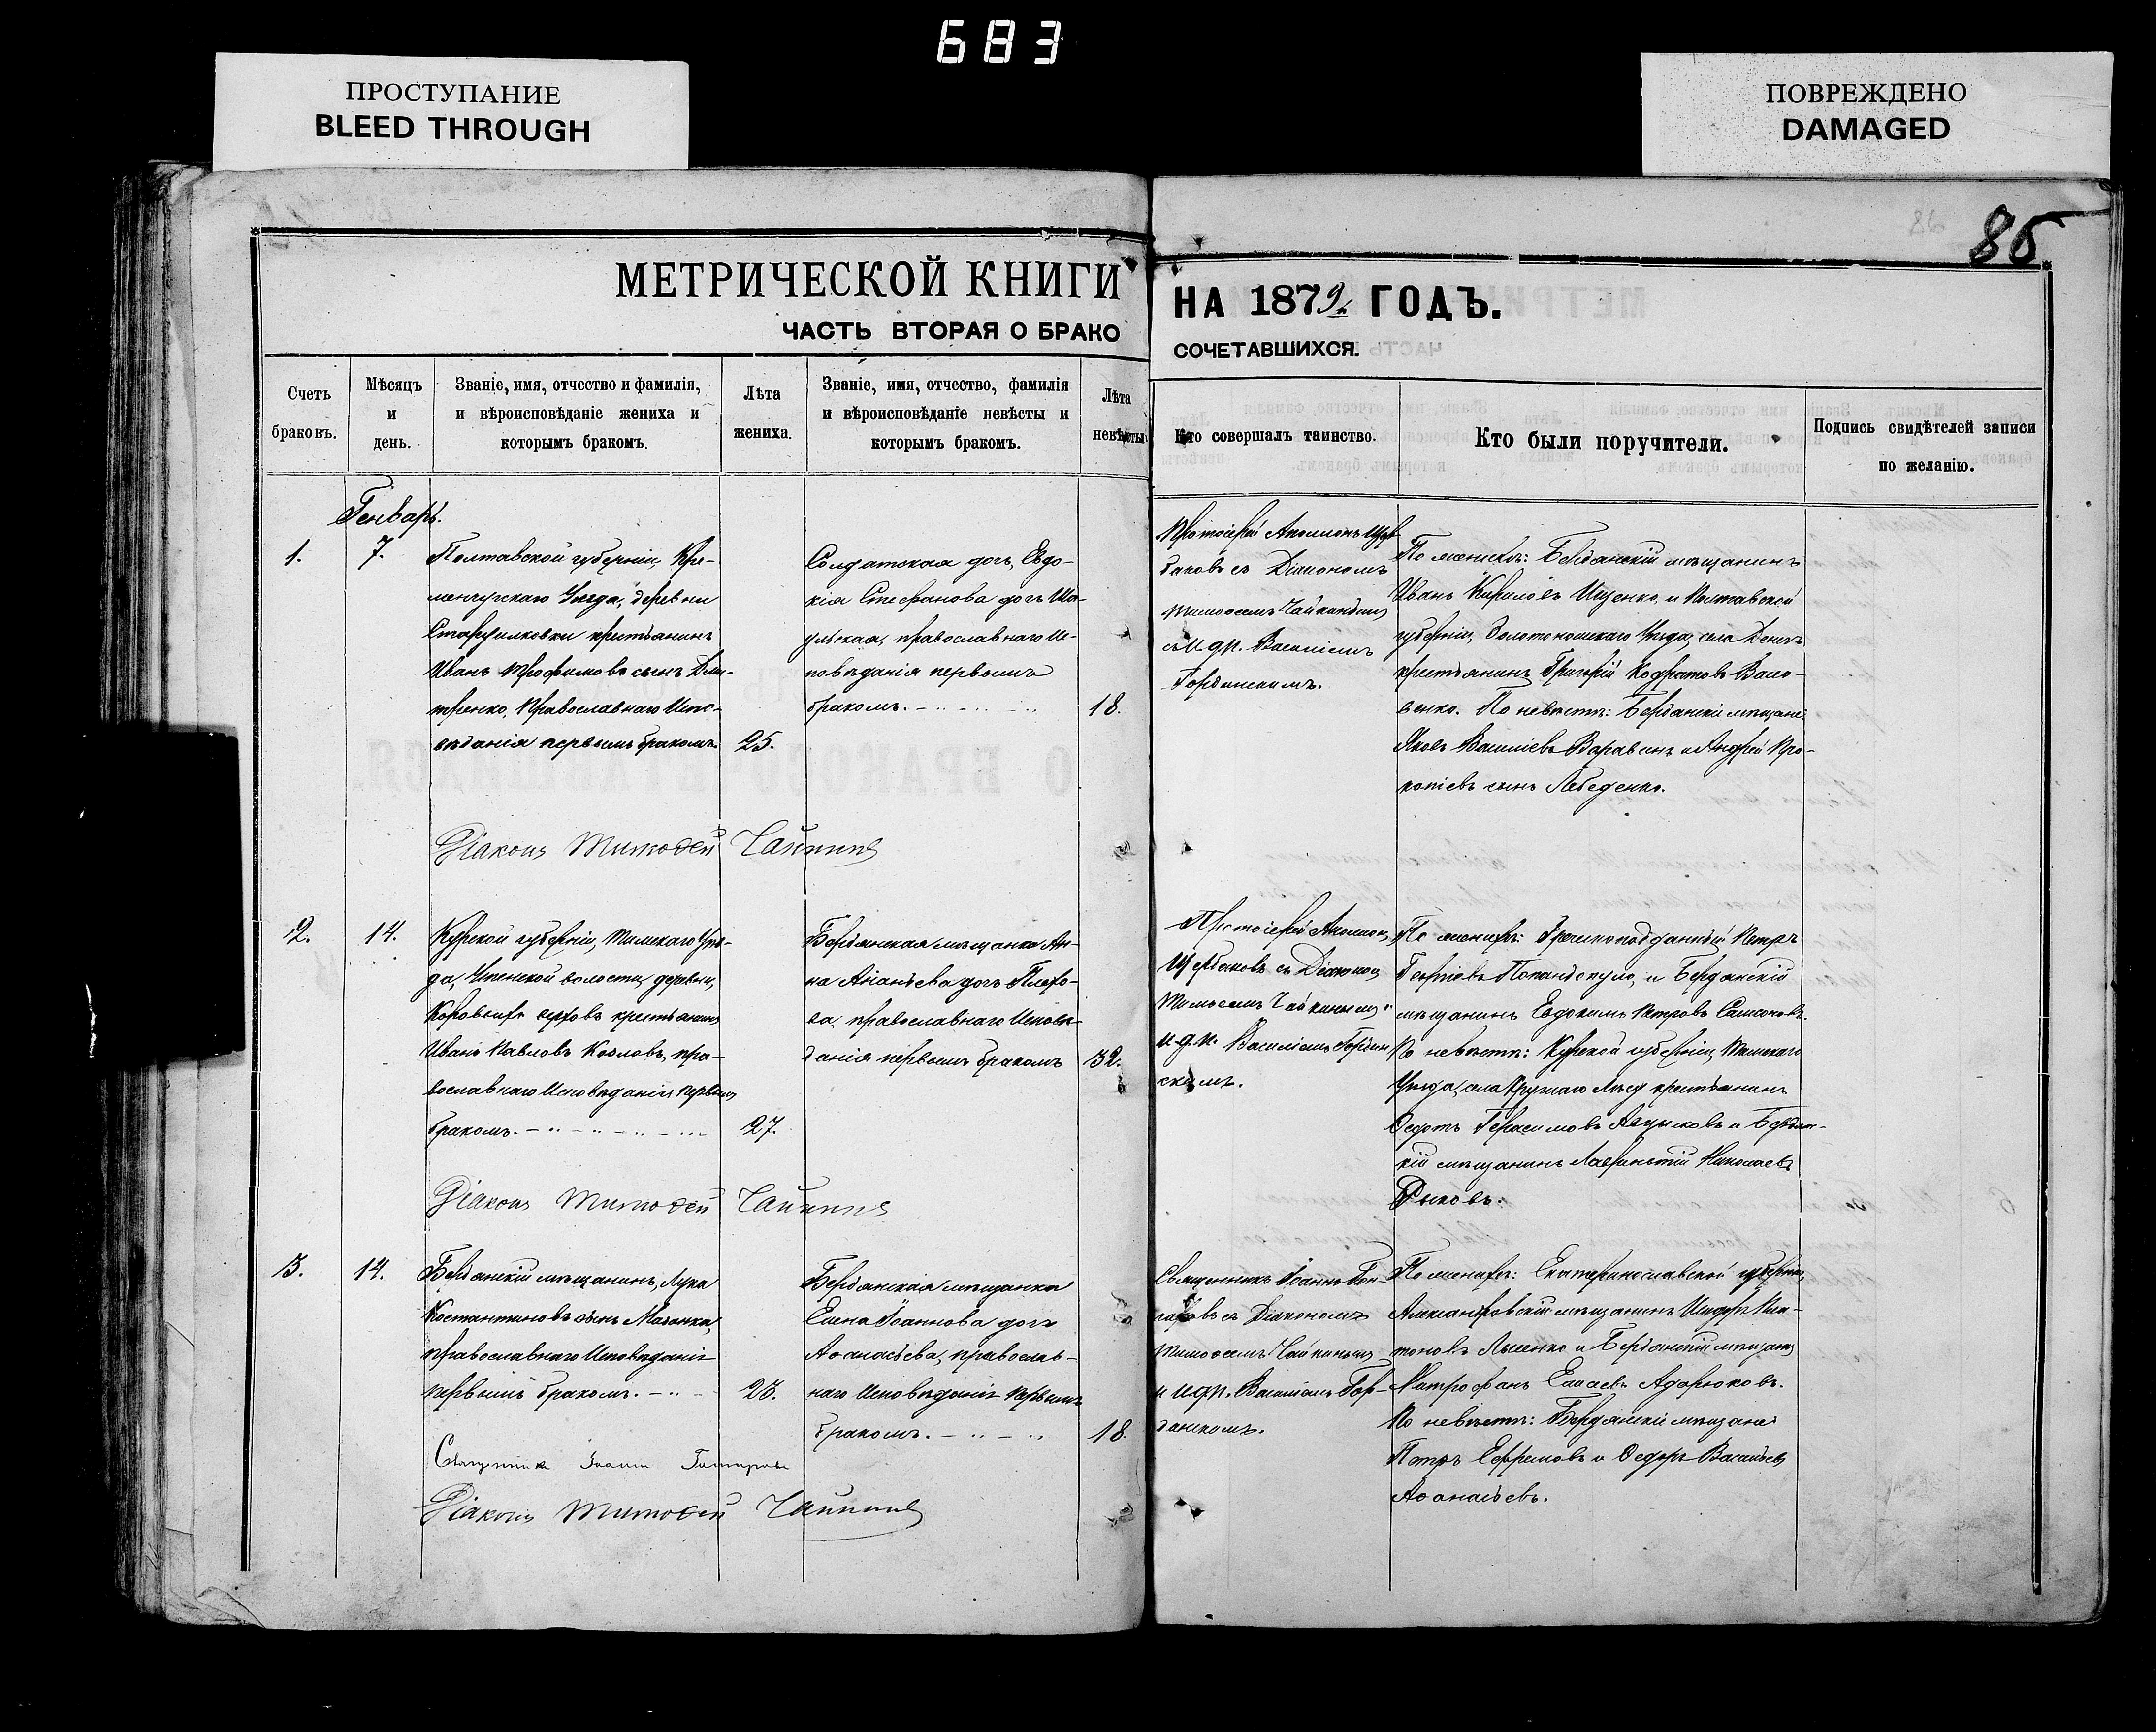 683
ПРОСТУПАНИЕ
BLEED THROUGH
ПОВРЕЖДЕНО
DAMAGED
86
85
МЕТРИЧЕСКОЙ КНИГИ
ЧАСТЬ ВТОРАЯ О БРАКО
НА 1879 ГОДЪ.
СОЧЕТАВШИХСЯ.
Счетъ
браковъ.
Мѣсяцъ
и
день.
Званіе, имя, отчество и фамилія,
и вѣроисповѣданіе жениха и
которымъ бракомъ.
Лѣта
жениха.
Званіе, имя, отчество, фамилія
и вѣроисповѣданіе невѣсты и
которымъ бракомъ.
Лѣта
невѣсты
Кто совершалъ таинство.
Кто были поручители.
Подпись свидѣтелей записи
по желанію.
Генварь.
1.
7.
Полтавской губерніи, Кре-
менчугскаго Уѣзда, деревни
крестьянинъ
Иванъ Трофимовъ сынъ Дми-
тренко, Православнаго Испо-
вѣданія первымъ бракомъ.
25.
Солдатская дочь, Евдо-
кія Стефанова дочь
православнаго Ис-
повѣданія первымъ
бракомъ.
18.
Протоіерей Аполлонъ Щер-
баковъ съ Діакономъ
Тимофеемъ Чайкинымъ
и И. д. п. Василіемъ
По женихѣ: Бердянскій мѣщанинъ
Иванъ Кириловъ Ищенко, и Полтавской
губерніи, Золотоношскаго Уѣзда, села
крестьянинъ Григорій Кодратовъ Васи-
ленко. По невѣстѣ: Бердянскіе мѣщане
Яковъ Василіевъ Варавинъ и Андрей Про-
копіевъ сынъ Лебеденко.
Діаконъ Тимофей Чайкинъ
2.
14.
Курской губерніи, Тимскаго Уѣз-
да, волости, деревни,
крестьянинъ
Иванъ Павловъ Козловъ, пра-
вославнаго Исповѣданія первымъ
бракомъ.
27.
Бердянская мѣщанка Ан-
на Ананьева дочь
православнаго Исповѣ-
данія первымъ бракомъ
32.
Протоіерей Аполлонъ
Щербаковъ съ Діакономъ
Тимофеемъ Чайкинымъ и
и. д. п. Василіемъ
скимъ.
По женихѣ: Грекоподданный Петръ
Георгіевъ Попандопуло, и Бердянскій
мѣщанинъ Евдокимъ Петровъ Самсоновъ.
По невѣстѣ: Курской губерніи, Тимскаго
Уѣзда, села крестьянинъ
Федотъ Герасимовъ и Бердян-
кій мѣщанинъ Лаврентій Николаевъ
Рыковъ.
Діаконъ Тимофей Чайкинъ
3.
14.
Бердянскій мѣщанинъ, Лука
Костантиновъ сынъ
православнаго Исповѣданія
первымъ бракомъ.
23.
Бердянская мѣщанка
Елена Іоаннова дочь
Аѳанасьева, православ-
наго Исповѣданія первымъ
бракомъ.
18.
Священникъ Іоаннъ
съ Діакономъ
Тимофеемъ Чайкинымъ
и И. д. п. Василіемъ
По женихѣ: Екатеринославской губерніи,
Александровскій мѣщанинъ
Лысенко и Бердянскій мѣщанинъ
Митрофанъ Елисеевъ
По невѣстѣ: Бердянскіе мѣщане
Петръ Ефремовъ и Федоръ Василіевъ
Аѳанасьевъ.
Священникъ Іоаннъ
Діаконъ Тимофей Чайкинъ